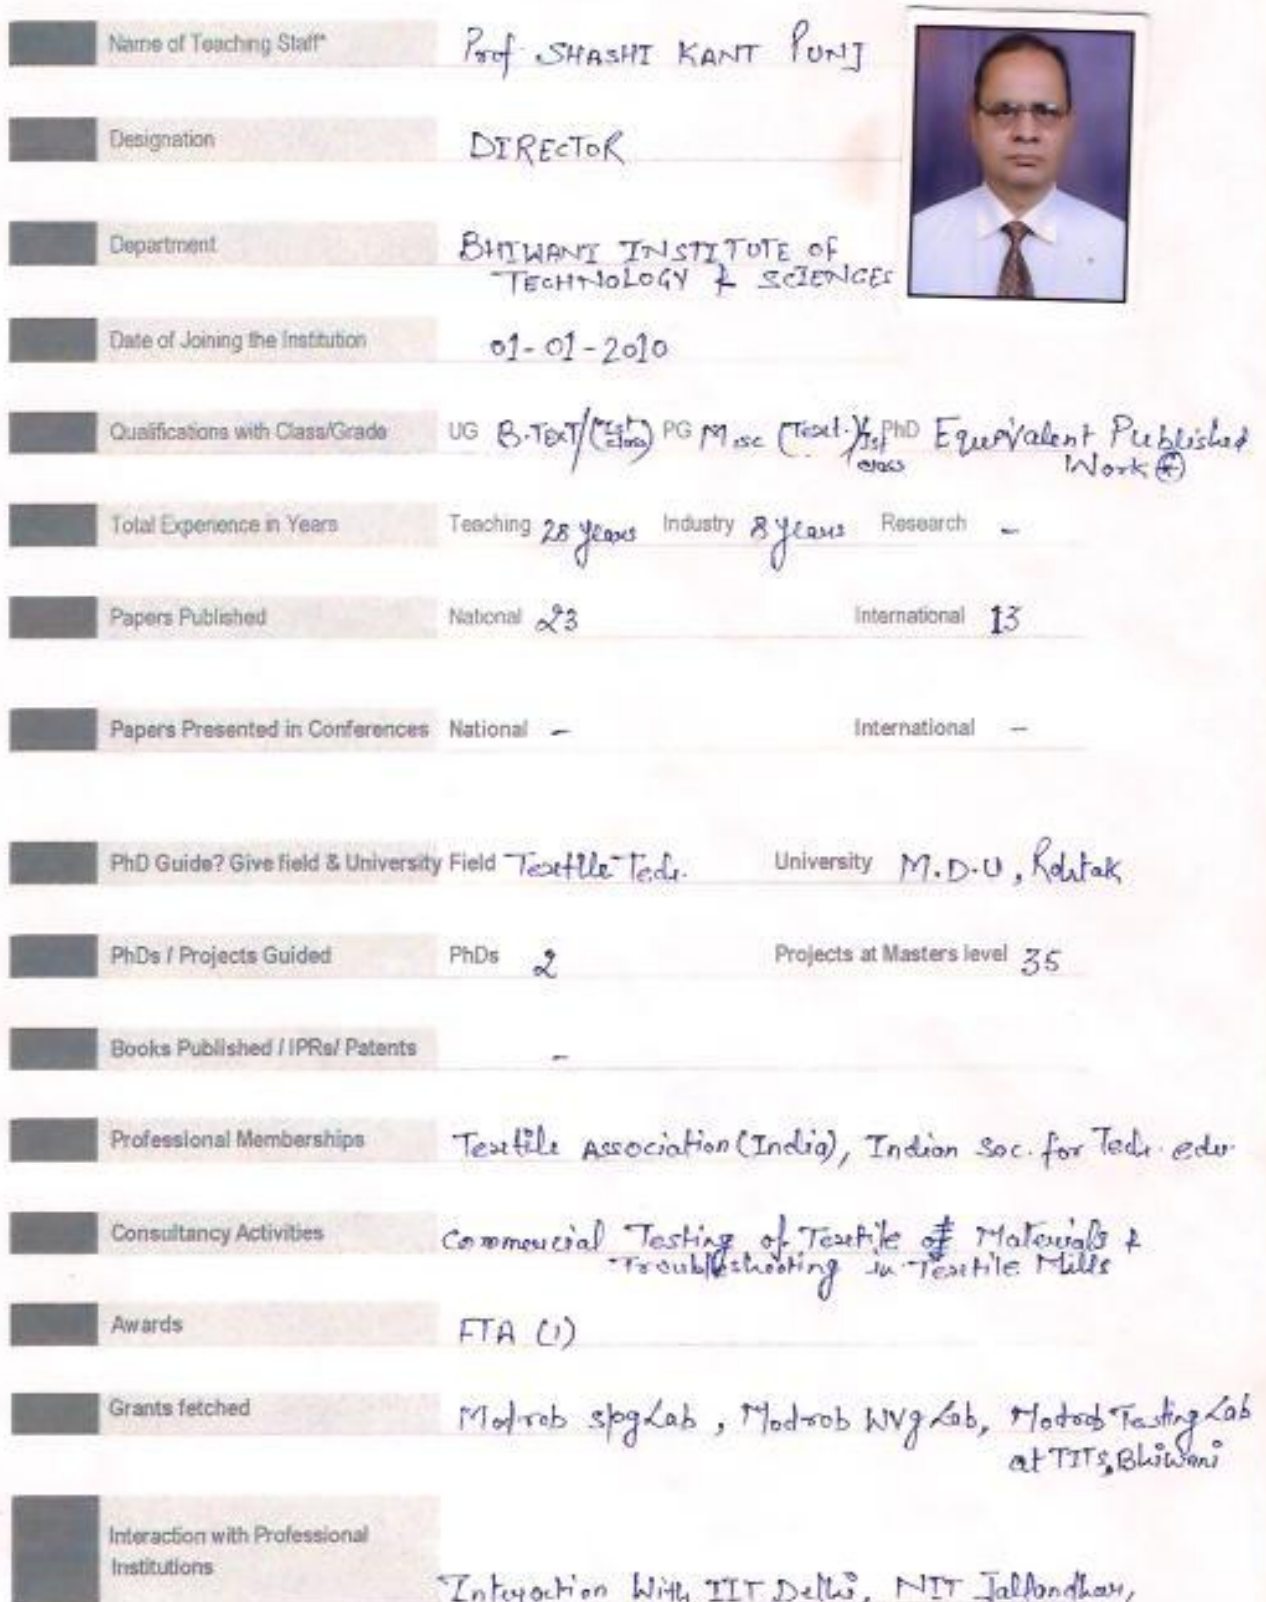 Name of Teaching Staff* Prof. SHASHI KANT PUNJ
Designation DIRECTOR
Department BHIWANI INSTITUTE OF
TECHNOLOGY & SCIENCES
Date of Joining the Institution 01-01-2010
Qualifications with Class/Grade UG B.TEXT/(Ist class) PG M.sc (Text.)/Ist class PhD Equivalent Published
Work *
Total Experience in Years Teaching 28 years Industry 8 years Research -
Papers Published National 23 International 13
Papers Presented in Conferences National - International -
PhD Guide? Give field & University Field Textile Tech. University M.D.U, Rohtak
PhDs / Projects Guided PhDs 2 Projects at Masters level 35
Books Published / IPRs/ Patents -
Professional Memberships Textile Association (India), Indian Soc. for Tech. edu.
Consultancy Activities Commercial Testing of Textile Materials &
Troubleshooting in Textile Mills
Awards FTA (1)
Grants fetched Modrob spg Lab, Modrob Wvg Lab, Modrob Testing Lab
at TITS, Bhiwani
Interaction with Professional
Institutions
Interaction With IIT Delhi, NIT Jallandhar,